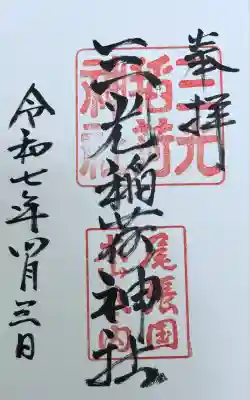 奉拝
三光稲荷神社
三光
稲荷
神社
尾張国
犬山城内
令和七年四月三日